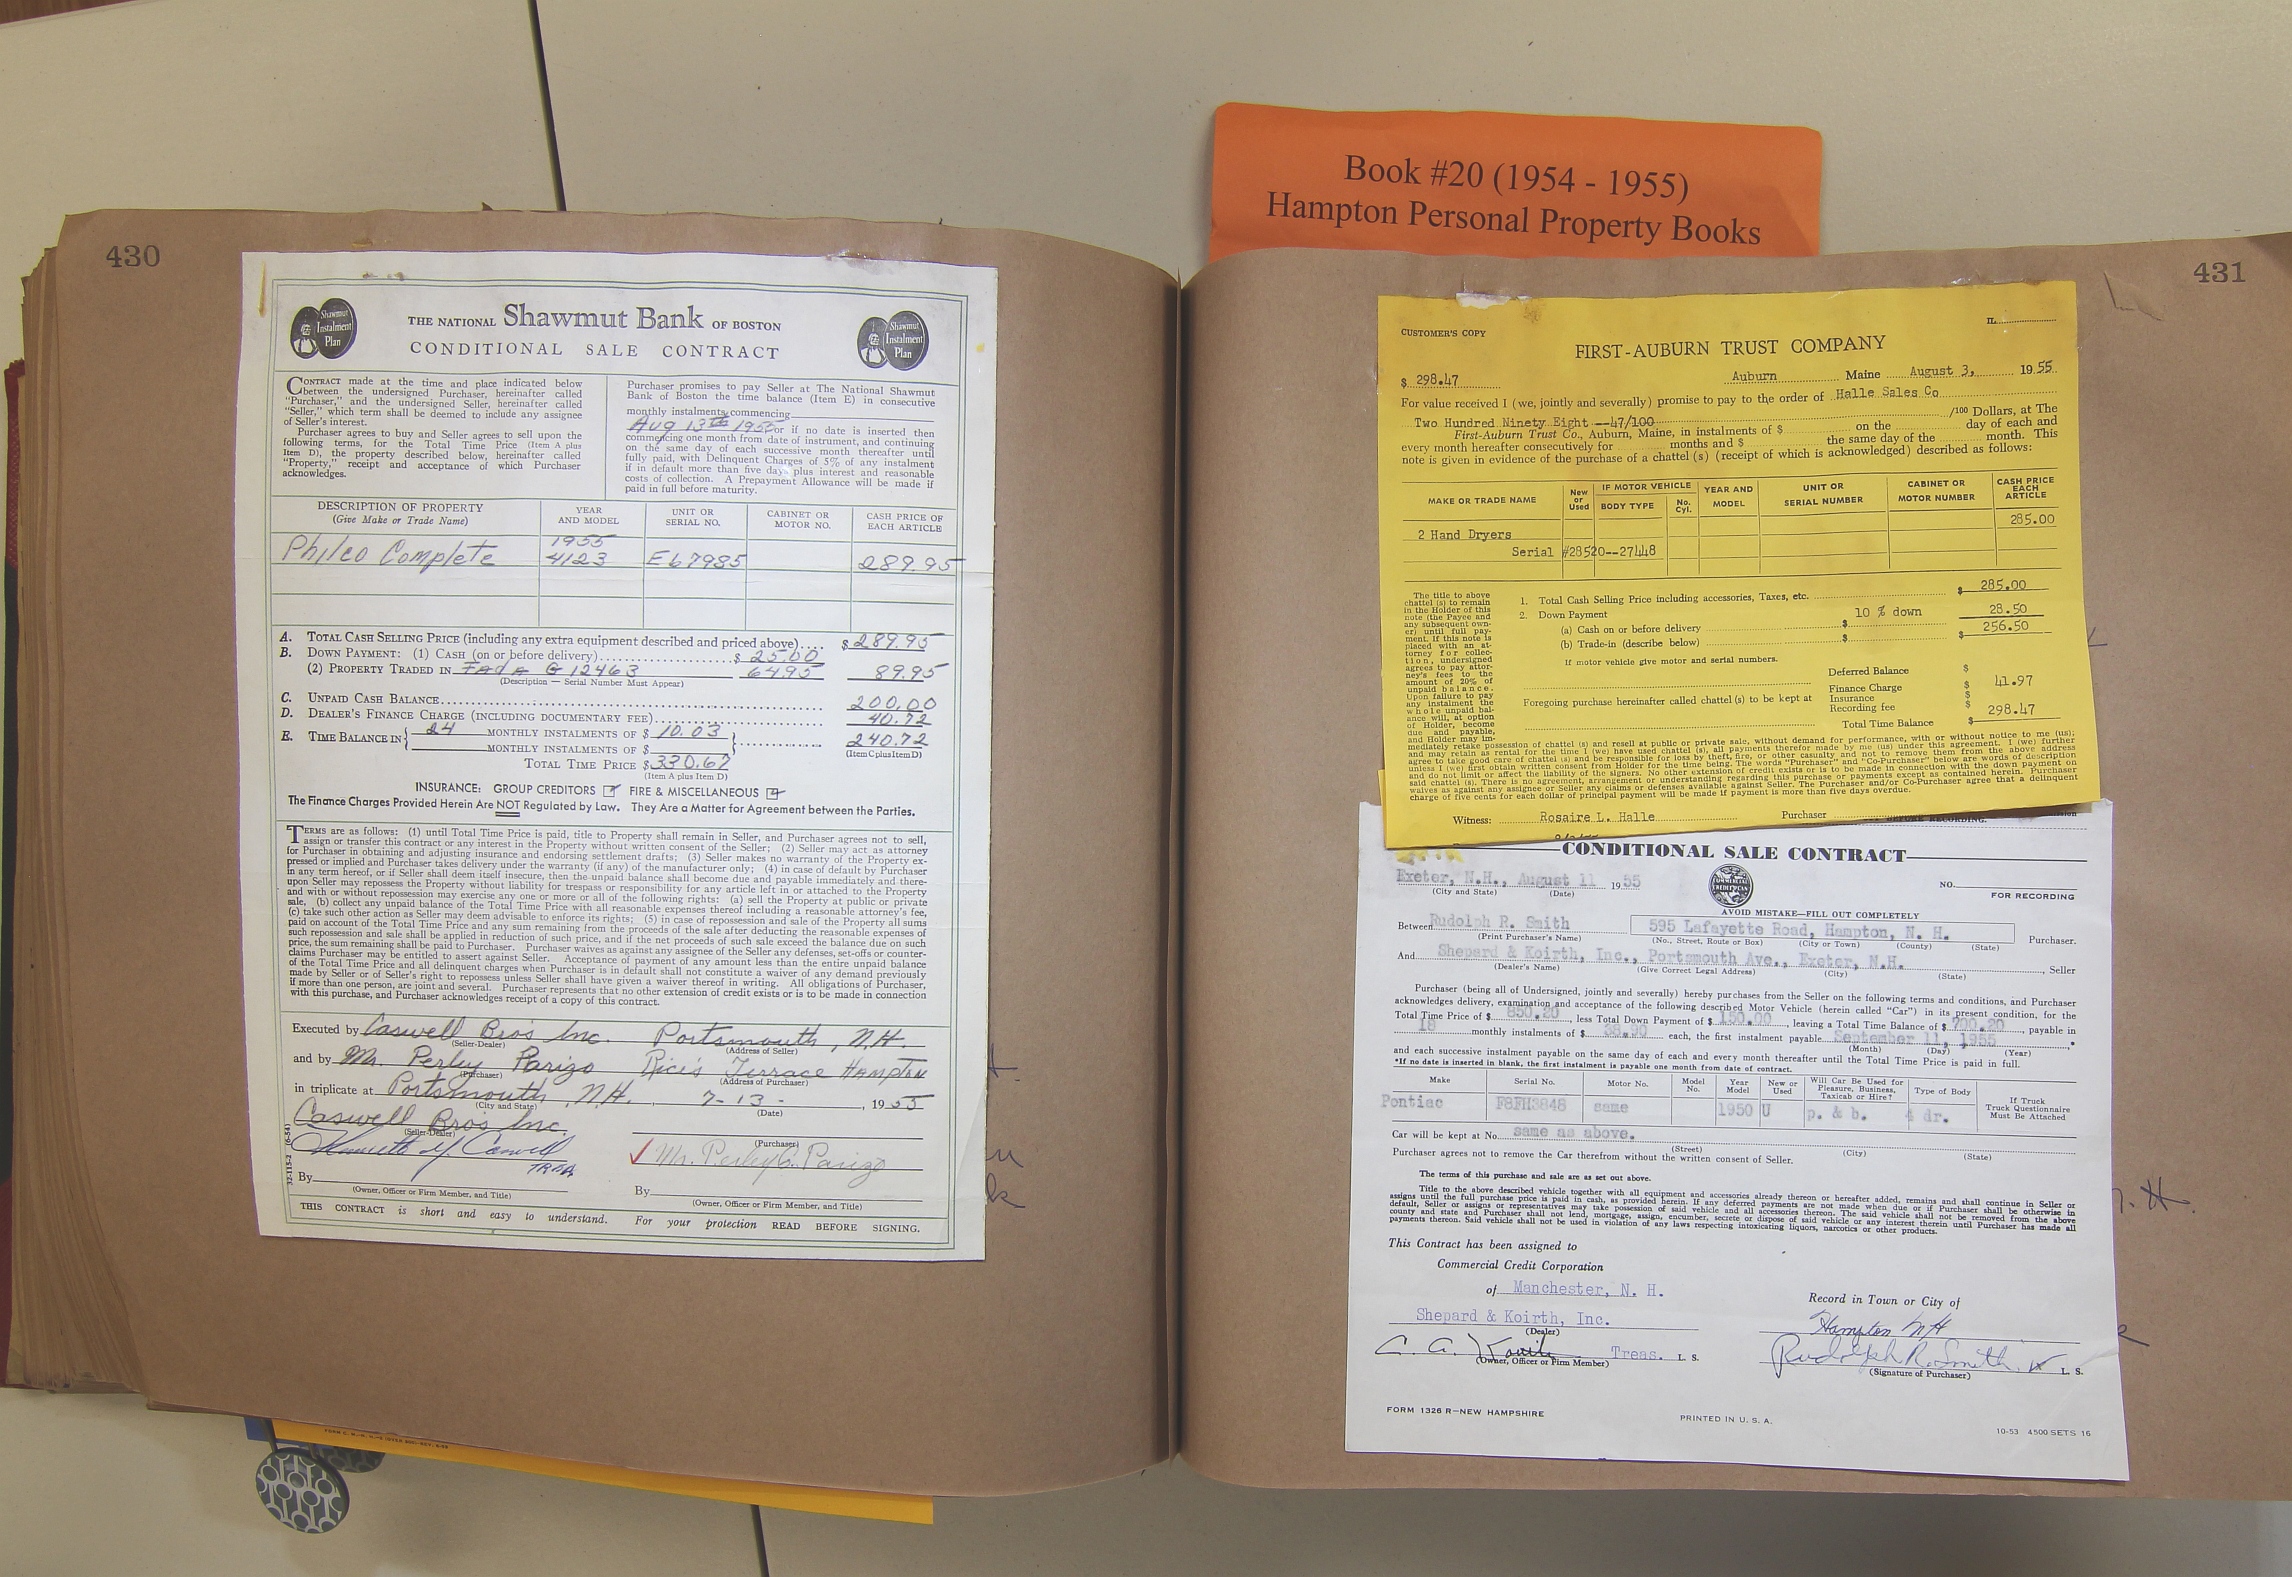 Book #20 (1954 - 1955)
Hampton Personal Property Books
430
Shawmut Instalment Plan
THE NATIONAL Shawmut Bank OF BOSTON
CONDITIONAL SALE CONTRACT
Shawmut Instalment Plan
CONTRACT made at the time and place indicated below
between the undersigned Purchaser, hereinafter called
"Purchaser," and the undersigned Seller, hereinafter called
"Seller," which term shall be deemed to include any assignee
of Seller's interest.
Purchaser agrees to buy and Seller agrees to sell upon the
following terms, for the Total Time Price (Item A plus
Item D), the property described below, hereinafter called
"Property," receipt and acceptance of which Purchaser
acknowledges.
Purchaser promises to pay Seller at The National Shawmut
Bank of Boston the time balance (Item E) in consecutive
monthly instalments commencing
Aug 13th 1955 or if no date is inserted then
commencing one month from date of instrument, and continuing
on the same day of each successive month thereafter until
fully paid, with Delinquent Charges of 5% of any instalment
if in default more than five days plus interest and reasonable
costs of collection. A Prepayment Allowance will be made if
paid in full before maturity.
DESCRIPTION OF PROPERTY (Give Make or Trade Name) YEAR AND MODEL UNIT OR SERIAL NO. CABINET OR MOTOR NO. CASH PRICE OF EACH ARTICLE
Philco Complete 1955 4123 E67985 289.95
A. TOTAL CASH SELLING PRICE (including any extra equipment described and priced above).... $289.95
B. DOWN PAYMENT: (1) CASH (on or before delivery)........ $ 25.00
(2) PROPERTY TRADED IN Fada G 12463 64.95 89.95
(Description — Serial Number Must Appear)
C. UNPAID CASH BALANCE........ 200.00
D. DEALER'S FINANCE CHARGE (INCLUDING DOCUMENTARY FEE)........ 40.72
E. TIME BALANCE IN 24 MONTHLY INSTALMENTS OF $ 10.03 240.72
MONTHLY INSTALMENTS OF $ (Item C plus Item D)
TOTAL TIME PRICE $330.67
(Item A plus Item D)
INSURANCE: GROUP CREDITORS FIRE & MISCELLANEOUS
The Finance Charges Provided Herein Are NOT Regulated by Law. They Are a Matter for Agreement between the Parties.
TERMS are as follows: (1) until Total Time Price is paid, title to Property shall remain in Seller, and Purchaser agrees not to sell,
assign or transfer this contract or any interest in the Property without written consent of the Seller; (2) Seller may act as attorney
for Purchaser in obtaining and adjusting insurance and endorsing settlement drafts; (3) Seller makes no warranty of the Property ex-
pressed or implied and Purchaser takes delivery under the warranty (if any) of the manufacturer only; (4) in case of default by Purchaser
in any term hereof, or if Seller shall deem itself insecure, then the unpaid balance shall become due and payable immediately and there-
upon Seller may repossess the Property without liability for trespass or responsibility for any article left in or attached to the Property
and with or without repossession may exercise any one or more or all of the following rights: (a) sell the Property at public or private
sale, (b) collect any unpaid balance of the Total Time Price with all reasonable expenses thereof including a reasonable attorney's fee,
(c) take such other action as Seller may deem advisable to enforce its rights; (5) in case of repossession and sale of the Property all sums
paid on account of the Total Time Price and any sum remaining from the proceeds of the sale after deducting the reasonable expenses of
such repossession and sale shall be applied in reduction of such price, and if the net proceeds of such sale exceed the balance due on such
price, the sum remaining shall be paid to Purchaser. Purchaser waives as against any assignee of the Seller any defenses, set-offs or counter-
claims Purchaser may be entitled to assert against Seller. Acceptance of payment of any amount less than the entire unpaid balance
of the Total Time Price and all delinquent charges when Purchaser is in default shall not constitute a waiver of any demand previously
made by Seller or of Seller's right to repossess unless Seller shall have given a waiver thereof in writing. All obligations of Purchaser,
if more than one person, are joint and several. Purchaser represents that no other extension of credit exists or is to be made in connection
with this purchase, and Purchaser acknowledges receipt of a copy of this contract.
Executed by Caswell Bro's Inc. Portsmouth, N.H.
(Seller-Dealer) (Address of Seller)
and by Mr. Perley Parizo Rice's Terrace HAMPTON
(Purchaser) (Address of Purchaser)
in triplicate at Portsmouth, N.H., 7-13-, 1955
(City and State) (Date)
Caswell Bro's Inc.
(Seller-Dealer) (Purchaser)
Kenneth M. Caswell Mr. Perley C. Parizo
TREA
By By
(Owner, Officer or Firm Member, and Title) (Owner, Officer or Firm Member, and Title)
THIS CONTRACT is short and easy to understand. For your protection READ BEFORE SIGNING.
32-115-2 (6-54)
431
CUSTOMER'S COPY
IL
FIRST-AUBURN TRUST COMPANY
$ 298.47 Auburn Maine August 3, 19 55
For value received I (we, jointly and severally) promise to pay to the order of Halle Sales Co
Two Hundred Ninety Eight --47/100 /100 Dollars, at The
First-Auburn Trust Co., Auburn, Maine, in instalments of $ on the day of each and
every month hereafter consecutively for months and $ the same day of the month. This
note is given in evidence of the purchase of a chattel (s) (receipt of which is acknowledged) described as follows:
MAKE OR TRADE NAME New or Used IF MOTOR VEHICLE BODY TYPE No. Cyl. YEAR AND MODEL UNIT OR SERIAL NUMBER CABINET OR MOTOR NUMBER CASH PRICE EACH ARTICLE
2 Hand Dryers 285.00
Serial #28520--27448
The title to above
chattel (s) to remain
in the Holder of this
note (the Payee and
any subsequent own-
er) until full pay-
ment. If this note is
placed with an at-
torney for collec-
tion, undersigned
agrees to pay attor-
ney's fees to the
amount of 20% of
unpaid balance.
Upon failure to pay
any instalment the
whole unpaid bal-
ance will, at option
of Holder, become
due and payable,
and Holder may im-
1. Total Cash Selling Price including accessories, Taxes, etc. $ 285.00
2. Down Payment 10 % down 28.50
(a) Cash on or before delivery $ 256.50
(b) Trade-in (describe below) $ $
If motor vehicle give motor and serial numbers.
Deferred Balance $
Finance Charge $ 41.97
Foregoing purchase hereinafter called chattel (s) to be kept at Insurance $
Recording fee $ 298.47
Total Time Balance $
mediately retake possession of chattel (s) and resell at public or private sale, without demand for performance, with or without notice to me (us);
and may retain as rental for the time I (we) have used chattel (s), all payments therefor made by me (us) under this agreement. I (we) further
agree to take good care of chattel (s) and be responsible for loss by theft, fire, or other casualty and not to remove them from the above address
unless I (we) first obtain written consent from Holder for the time being. The words "Purchaser" and "Co-Purchaser" below are words of description
and do not limit or affect the liability of the signers. No other extension of credit exists or is to be made in connection with the down payment on
said chattel (s). There is no agreement, arrangement or understanding regarding this purchase or payments except as contained herein. Purchaser
waives as against any assignee or Seller any claims or defenses available against Seller. The Purchaser and/or Co-Purchaser agree that a delinquent
charge of five cents for each dollar of principal payment will be made if payment is more than five days overdue.
Witness: Rosaire L. Halle Purchaser
BEFORE RECORDING.
CONDITIONAL SALE CONTRACT
Exeter, N.H., August 11 19 55
(City and State) (Date)
COMMERCIAL CREDIT CAN
NO.
FOR RECORDING
AVOID MISTAKE—FILL OUT COMPLETELY
Between Rudolph R. Smith 595 Lafayette Road, Hampton, N. H. Purchaser.
(Print Purchaser's Name) (No., Street, Route or Box) (City or Town) (County) (State)
And Shepard & Koirth, Inc., Portsmouth Ave., Exeter, N.H., Seller
(Dealer's Name) (Give Correct Legal Address) (City) (State)
Purchaser (being all of Undersigned, jointly and severally) hereby purchases from the Seller on the following terms and conditions, and Purchaser
acknowledges delivery, examination and acceptance of the following described Motor Vehicle (herein called "Car") in its present condition, for the
Total Time Price of $ 850.20, less Total Down Payment of $ 150.00, leaving a Total Time Balance of $ 700.20, payable in
18 monthly instalments of $ 38.90 each, the first instalment payable September 11, 1955
(Month) (Day) (Year)
and each successive instalment payable on the same day of each and every month thereafter until the Total Time Price is paid in full.
*If no date is inserted in blank, the first instalment is payable one month from date of contract.
Make Serial No. Motor No. Model No. Year Model New or Used Will Car Be Used for Pleasure, Business, Taxicab or Hire? Type of Body If Truck Truck Questionnaire Must Be Attached
Pontiac P8FH3848 same 1950 U p. & b. 4 dr.
Car will be kept at No. same as above.
(Street) (City) (State)
Purchaser agrees not to remove the Car therefrom without the written consent of Seller.
The terms of this purchase and sale are as set out above.
Title to the above described vehicle together with all equipment and accessories already thereon or hereafter added, remains and shall continue in Seller or
assigns until the full purchase price is paid in cash, as provided herein. If any deferred payments are not made when due or if Purchaser shall be otherwise in
default, Seller or assigns or representatives may take possession of said vehicle and all accessories thereon. The said vehicle shall not be removed from the above
county and state and Purchaser shall not lend, mortgage, assign, encumber, secrete or dispose of said vehicle or any interest therein until Purchaser has made all
payments thereon. Said vehicle shall not be used in violation of any laws respecting intoxicating liquors, narcotics or other products.
This Contract has been assigned to
Commercial Credit Corporation
of Manchester, N. H.
Record in Town or City of
Shepard & Koirth, Inc. Hampton NH
(Dealer)
C. A. Koirth Treas. L. S. Rudolph R. Smith L. S.
(Owner, Officer or Firm Member) (Signature of Purchaser)
FORM 1326 R—NEW HAMPSHIRE PRINTED IN U. S. A. 10-53 4500 SETS 16